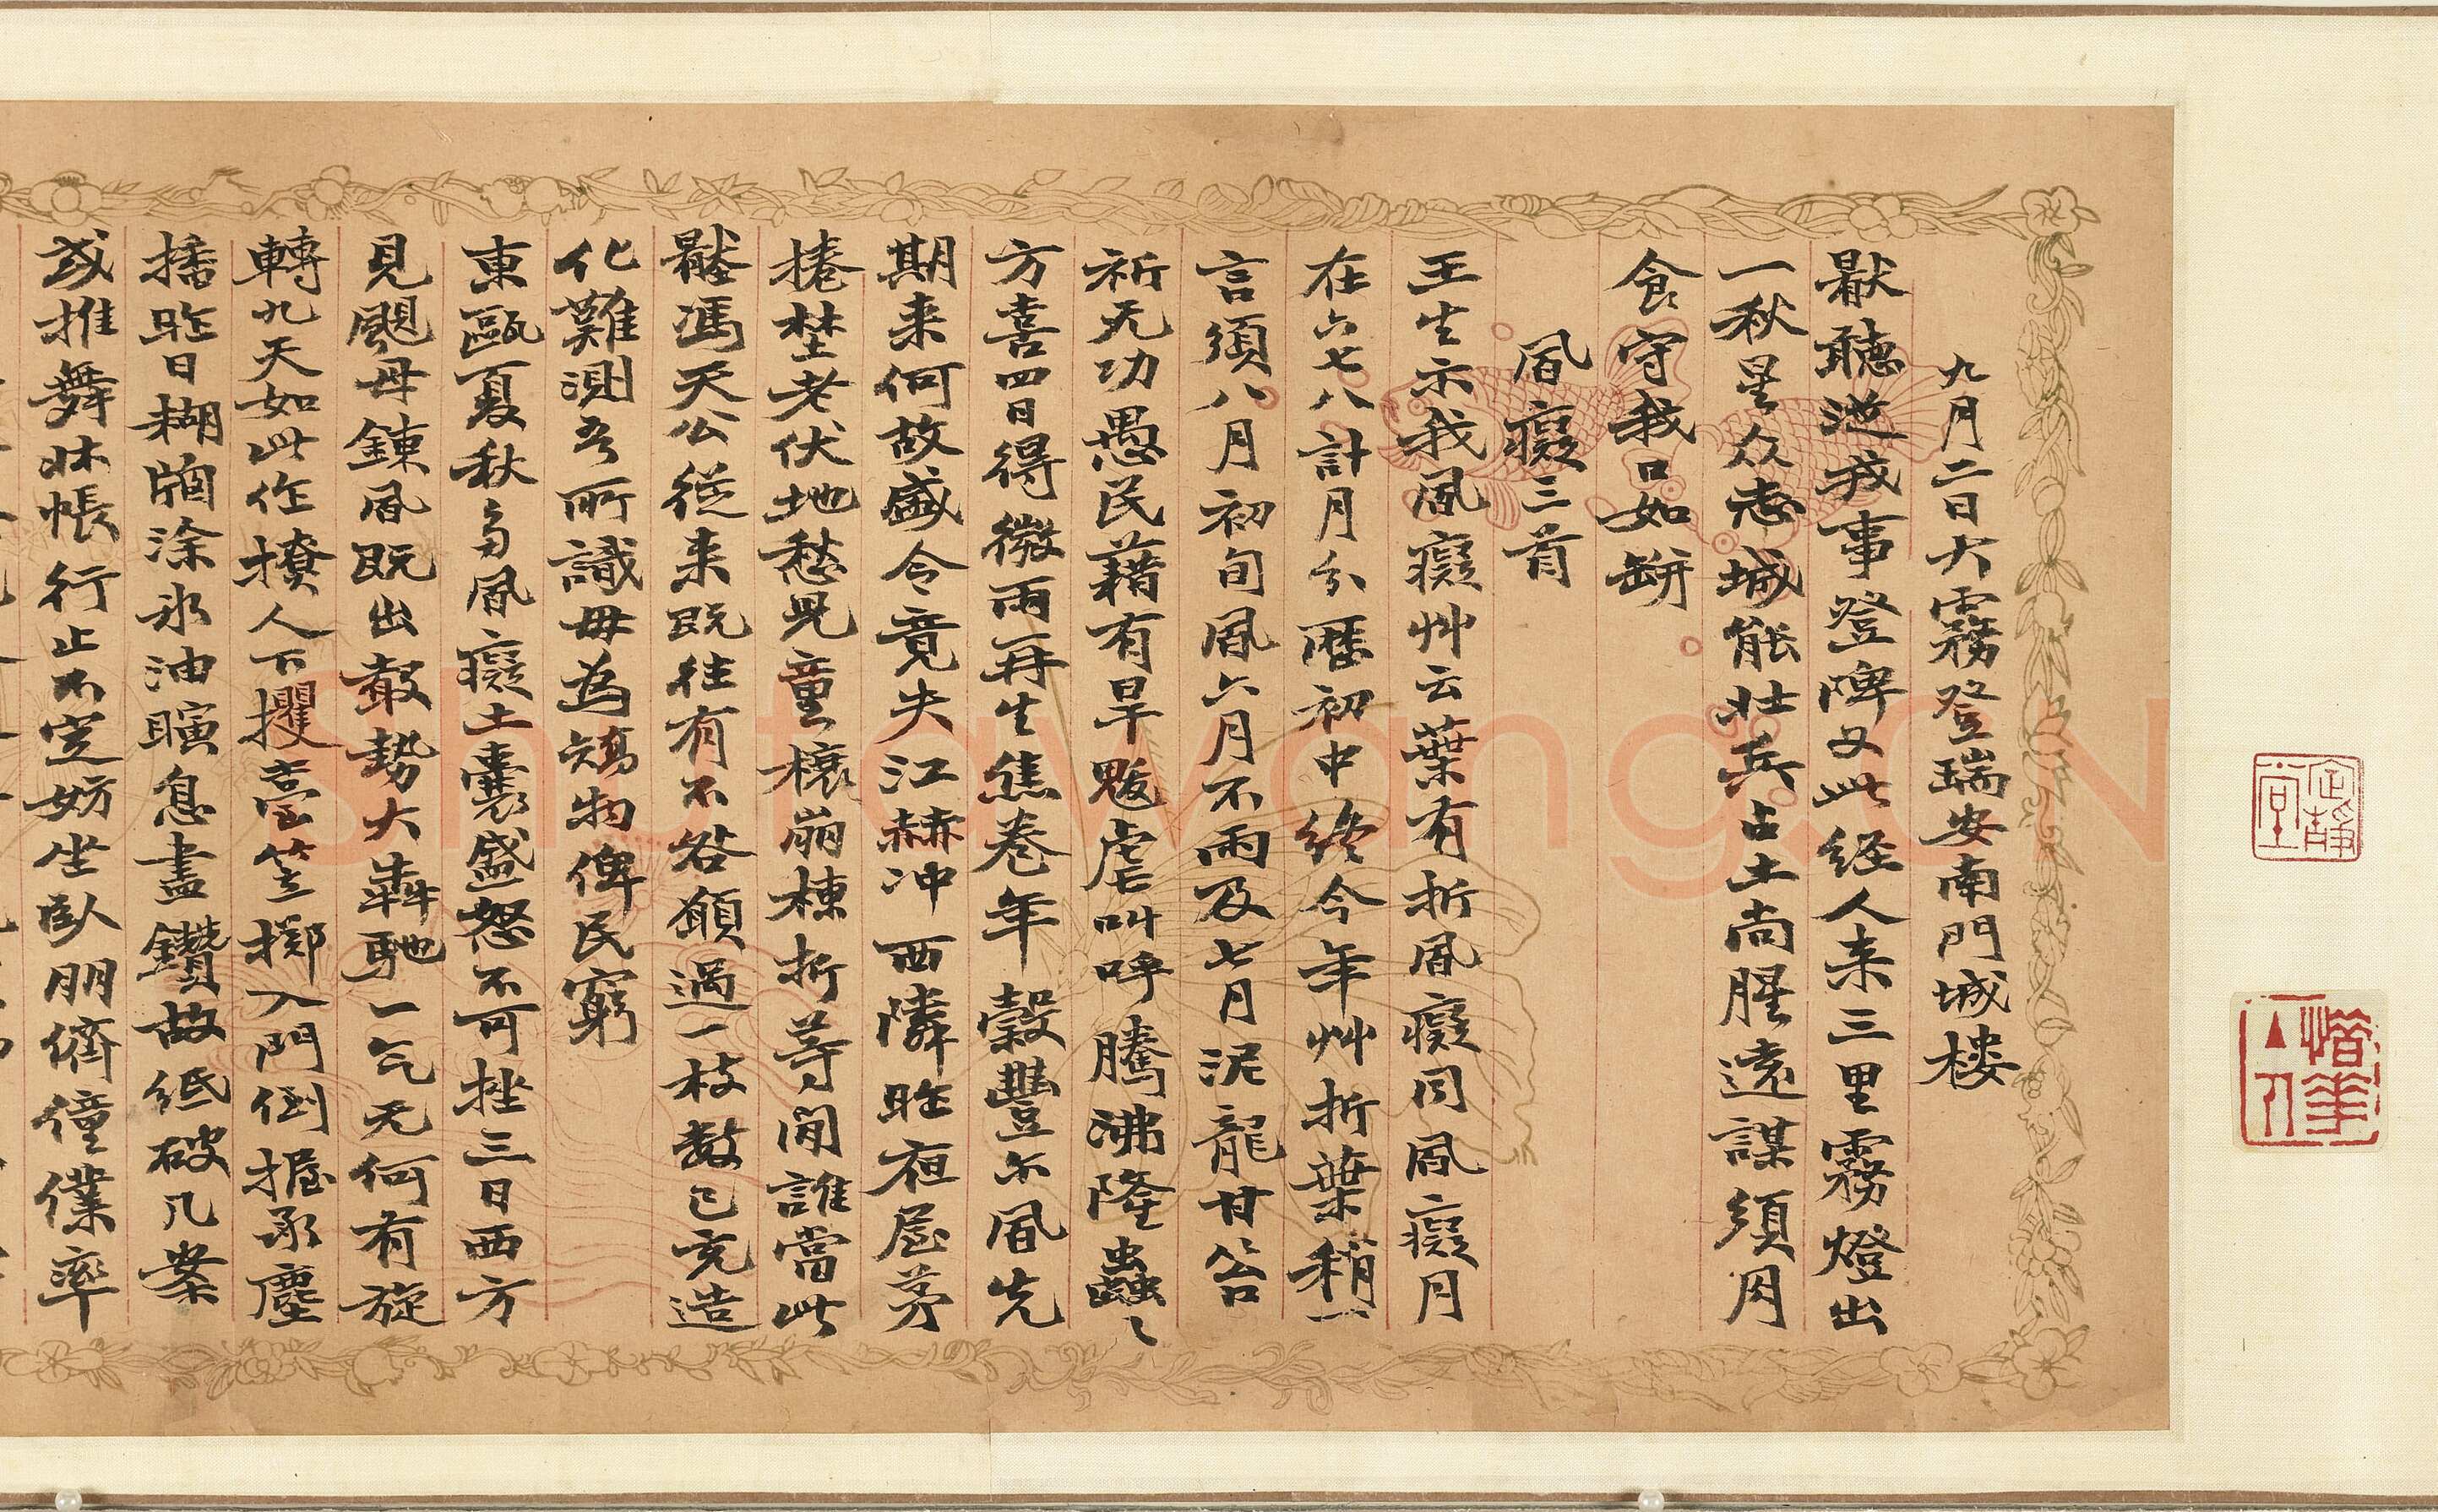 九月二日大霧登瑞安南門城楼
厭聽逆我事登陴又此経人来三里霧燈出
一秋星众志城能壯兵占土尚腥遠謀須肉
食守我口如缾
風癡三首
王生示我風癡艸云葉有折風癡同風癡月
在六七八計月分曆初中終今年艸折葉稍一
言須八月初旬風六月不雨及七月泥龍甘答
祈无功愚民藉有旱魃虐叫呼騰沸隆蟲〻
方喜四日得微雨再生焦卷年穀豐尒風先
期来何故盛令竟夫江赫冲西隣昨夜屋茅
捲埜老伏地愁見童榱崩棟折等閒誰當此
馮天公從来既往有不咎願過一枝数已充造
化難測吾所識毋為鴆物俾民窮
東甌夏秋多風癡土囊盛怒不可挫三日西方
見颶母鍊風既出㪣勢大犇馳一气无何有旋
轉九天如此作撩人下攫臺笠擲入門倒握承塵
播昨日糊牖涂氷油瞚息盡鑽故紙破几案
或推舞牀帳行止不定妨坐臥朋儕僮僕率
定靜堂
Shufawang.CN